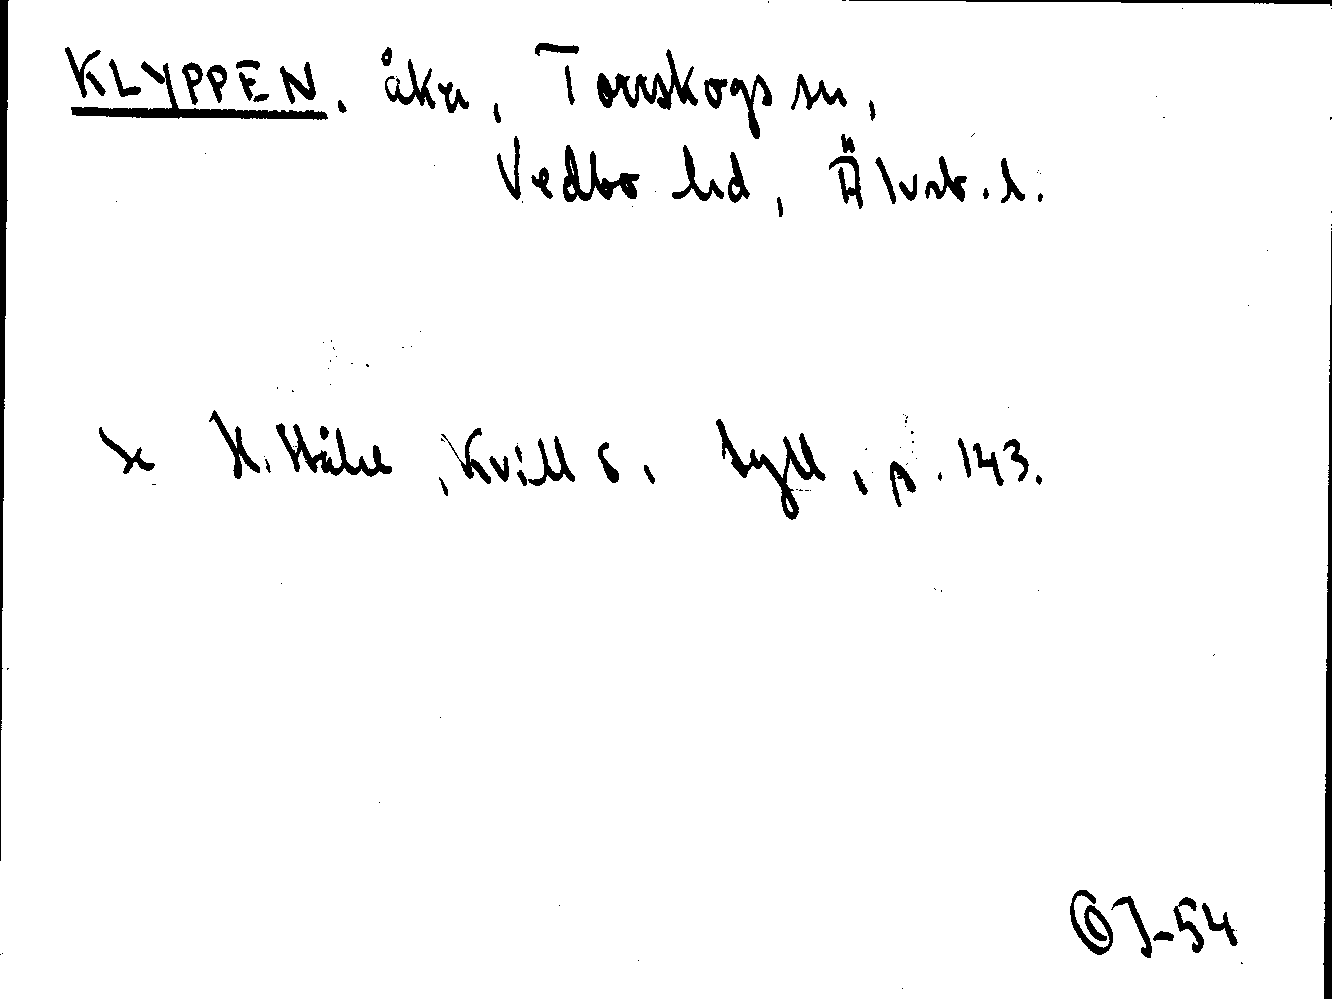 KLYPPEN. åker, Torrskogs sn,
Vedbo hd, Älvsb. l.
Se H. Ståhl, Kvill o. Tyll, p. 143.
OJ-54